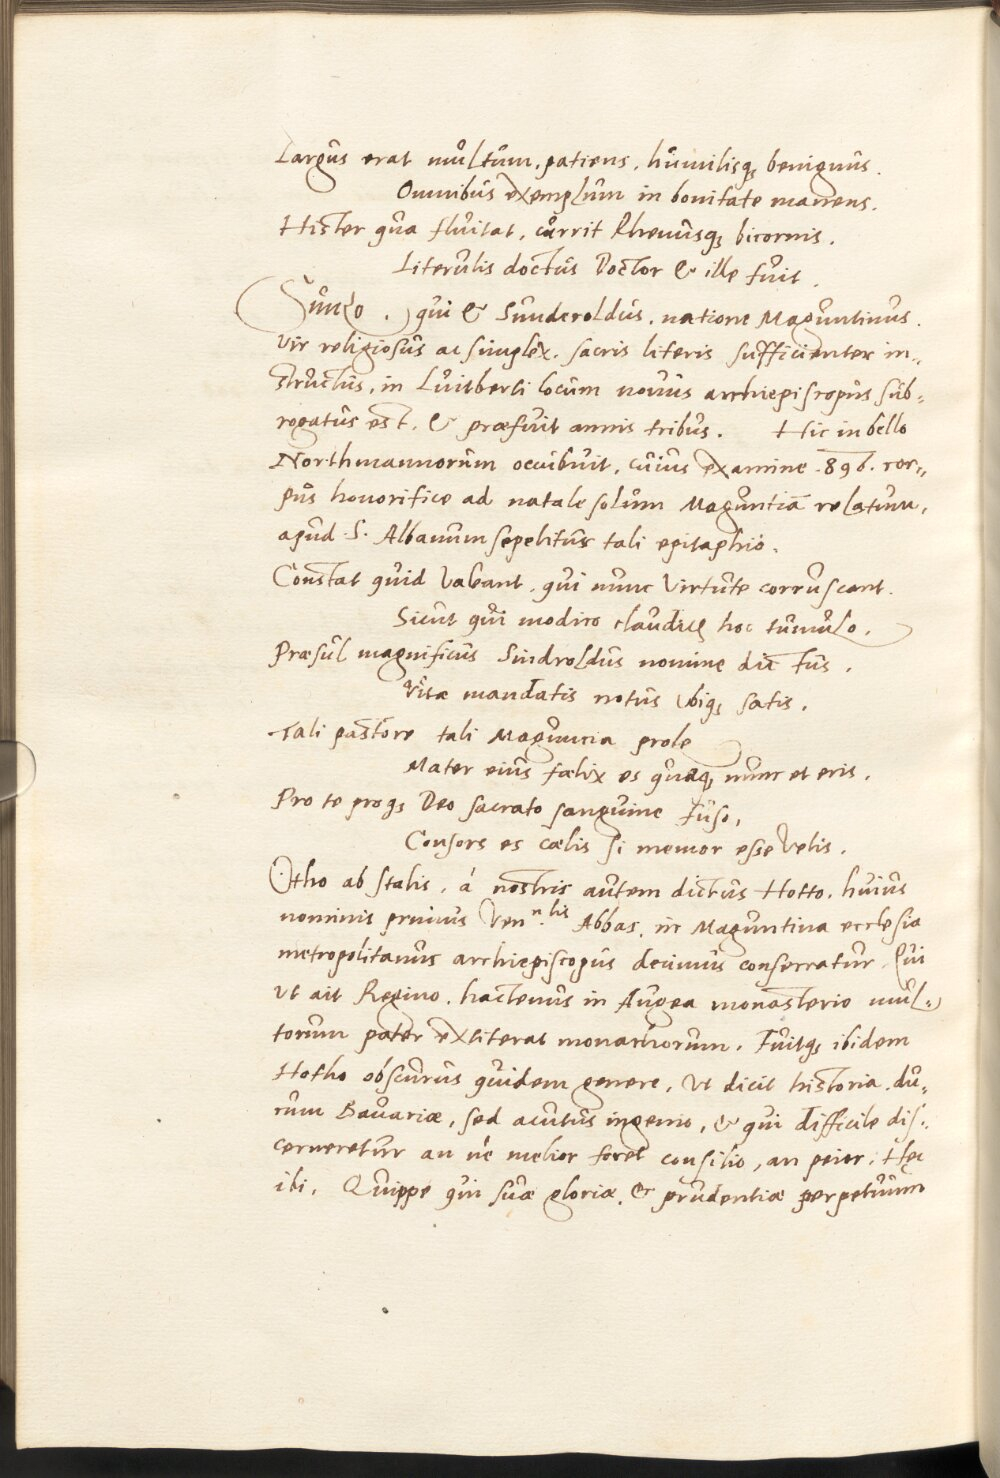 Largus erat multum, patiens, humilisq; benignus.
Omnibus exemplum in bonitate manens.
Hister qua fluitat, currit Rhenusq; bicornis.
Literulis doctus Doctor & ille fuit.
Sunzo. qui & Sunderoldus, natione Maguntinus.
Vir religiosus ac simplex, sacris literis sufficienter in-
structus, in Luitberti locum novus archiepiscopus sub-
rogatus est, & præfuit annis tribus. Hic in bello
Northmannorum occubuit, cuius examine .896. cor-
pus honorifice ad natale solum Maguntiā relatum,
apud .S. Albanum sepelitur tali epitaphio.
Constat quid valeant, qui nunc virtute corruscant.
Sicut qui modico clauditq; hoc tumulo.
Præsul magnificus Sindroldus nomine dictus.
Vitæ mandatis notus ubiq; satis.
Tali pastore tali Maguncia prole
Mater eius fœlix es quæq; nunc et eris.
Pro te proq; Deo sacrato sanguine fuso,
Consors es cœlis si memor esse velis.
Otho ab Italis, á nostris autem dictus Hotto, huius
nominis primus Ven.n.lis Abbas, in Maguntina ecclesia
metropolitanus archiepiscopus decimus consecratur. Qui
ut ait Regino, hactenus in Augea monasterio mul-
torum pater extiterat monachorum. Fuitq; ibidem
Hotho obscurus quidem genere, ut dicit historia du-
cum Bavariæ, sed acutus ingenio, & qui difficile dis-
cerneretur an né melior foret consilio, an peior. Hęc
ibi. Quippe qui suæ gloriæ, & prudentiæ perpetuum